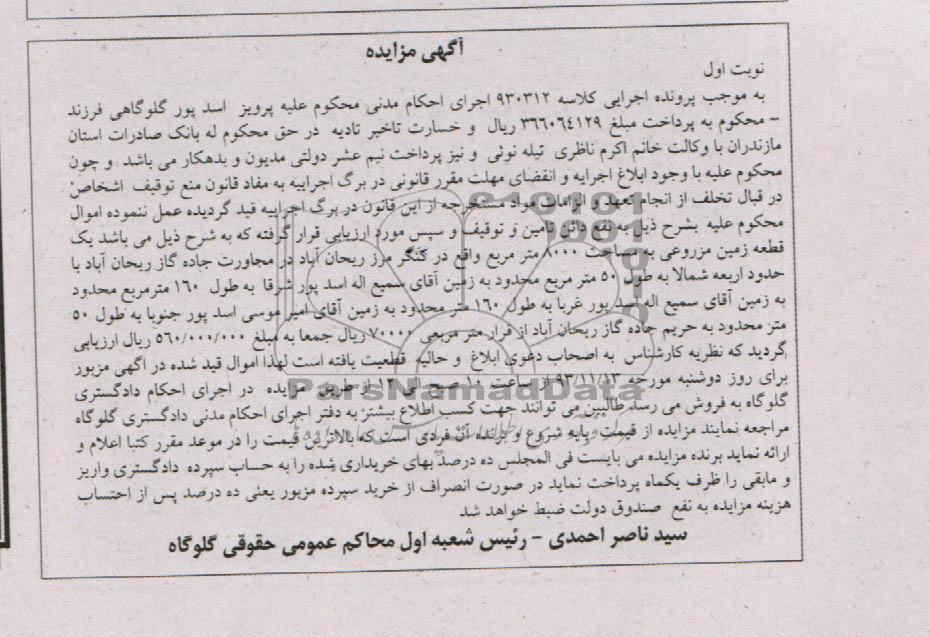 آگهی مزایده
نوبت اول
به موجب پرونده اجرایی کلاسه ۹۳۰۳۱۲ اجرای احکام مدنی محکوم علیه پرویز اسد پور گلوگاهی فرزند
– محکوم به پرداخت مبلغ ۳۶۶۰۶۴۱۲۹ ریال و خسارت تاخیر تادیه در حق محکوم له بانک صادرات استان
مازندران با وکالت خانم اکرم ناظری تیله نوئی و نیز پرداخت نیم عشر دولتی مدیون و بدهکار می باشد و چون
محکوم علیه با وجود ابلاغ اجرایه و انقضای مهلت مقرر قانونی در برگ اجراییه به مفاد قانون منع توقیف اشخاص
در قبال تخلف از انجام تعهد و الزامات مواد مستخرجه از این قانون در برگ اجراییه قید گردیده عمل ننموده اموال
محکوم علیه بشرح ذیل به نفع دائن تامین و توقیف و سپس مورد ارزیابی قرار گرفته که به شرح ذیل می باشد یک
قطعه زمین مزروعی به مساحت ۸۰۰۰ متر مربع واقع در کنگر مرز ریحان آباد در مجاورت جاده گاز ریحان آباد با
حدود اربعه شمالا به طول ۵۰ متر مربع محدود به زمین آقای سمیع اله اسد پور شرقا به طول ۱۶۰ مترمربع محدود
به زمین آقای سمیع اله اسد پور غربا به طول ۱۶۰ متر محدود به زمین آقای امیر موسی اسد پور جنوبا به طول ۵۰
متر محدود به حریم جاده گاز ریحان آباد از قرار متر مربعی ۷۰۰۰۰ ریال جمعا به مبلغ ۵۶۰/۰۰۰/۰۰۰ ریال ارزیابی
گردید که نظریه کارشناس به اصحاب دعوی ابلاغ و حالیه قطعیت یافته است لهذا اموال قید شده در اگهی مزبور
برای روز دوشنبه مورخه ۹۳/۱۱/۱۳ از ساعت ۱۰ صبح الی ۱۲ از طریق مزایده در اجرای احکام دادگستری
گلوگاه به فروش می رسد طالبین می توانند جهت کسب اطلاع بیشتر به دفتر اجرای احکام مدنی دادگستری گلوگاه
مراجعه نمایند مزایده از قیمت پایه شروع و برنده آن فردی است که بالاترین قیمت را در موعد مقرر کتبا اعلام و
ارائه نماید برنده مزایده می بایست فی المجلس ده درصد بهای خریداری شده را به حساب سپرده دادگستری واریز
و مابقی را ظرف یکماه پرداخت نماید در صورت انصراف از خرید سپرده مزبور یعنی ده درصد پس از احتساب
هزینه مزایده به نفع صندوق دولت ضبط خواهد شد
سید ناصر احمدی – رئیس شعبه اول محاکم عمومی حقوقی گلوگاه
ParsNamadData